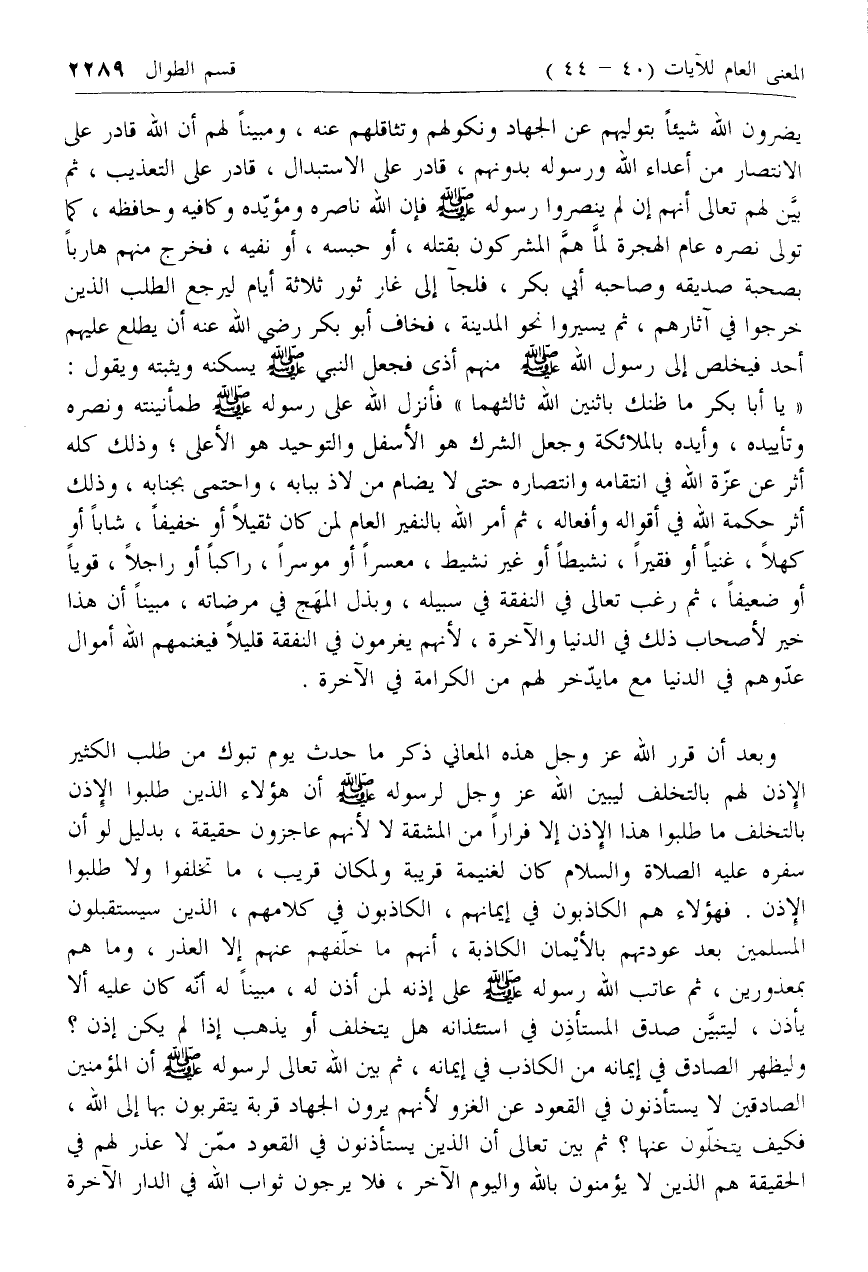 المعنى العام للآيات (٤٠ - ٤٤) قسم الطوال ٢٢٨٩
يضرون الله شيئاً بتوليهم عن الجهاد ونكولهم وتثاقلهم عنه ، ومبيناً لهم أن الله قادر على
الانتصار من أعداء الله ورسوله بدونهم ، قادر على الاستبدال ، قادر على التعذيب ، ثم
بيَّن لهم تعالى أنهم إن لم ينصروا رسوله ﷺ فإن الله ناصره ومؤيّده وكافيه وحافظه ، كما
تولى نصره عام الهجرة لمَّا همَّ المشركون بقتله ، أو حبسه ، أو نفيه ، فخرج منهم هارباً
بصحبة صديقه وصاحبه أبي بكر ، فلجآ إلى غار ثور ثلاثة أيام ليرجع الطلب الذين
خرجوا في آثارهم ، ثم يسيروا نحو المدينة ، فخاف أبو بكر رضي الله عنه أن يطلع عليهم
أحد فيخلص إلى رسول الله ﷺ منهم أذى فجعل النبي ﷺ يسكنه ويثبته ويقول :
« يا أبا بكر ما ظنك باثنين الله ثالثهما » فأنزل الله على رسوله ﷺ طمأنينته ونصره
وتأييده ، وأيده بالملائكة وجعل الشرك هو الأسفل والتوحيد هو الأعلى ؛ وذلك كله
أثر عن عزّة الله في انتقامه وانتصاره حتى لا يضام من لاذ ببابه ، واحتمى بجنابه ، وذلك
أثر حكمة الله في أقواله وأفعاله ، ثم أمر الله بالنفير العام لمن كان ثقيلاً أو خفيفاً ، شاباً أو
كهلاً ، غنياً أو فقيراً ، نشيطاً أو غير نشيط ، معسراً أو موسراً ، راكباً أو راجلاً ، قوياً
أو ضعيفاً ، ثم رغب تعالى في النفقة في سبيله ، وبذل المهَج في مرضاته ، مبيناً أن هذا
خير لأصحاب ذلك في الدنيا والآخرة ، لأنهم يغرمون في النفقة قليلاً فيغنمهم الله أموال
عدّوهم في الدنيا مع مايدّخر لهم من الكرامة في الآخرة .
وبعد أن قرر الله عز وجل هذه المعاني ذكر ما حدث يوم تبوك من طلب الكثير
الإذن لهم بالتخلف ليبين الله عز وجل لرسوله ﷺ أن هؤلاء الذين طلبوا الإذن
بالتخلف ما طلبوا هذا الإذن إلا فراراً من المشقة لا لأنهم عاجزون حقيقة ، بدليل لو أن
سفره عليه الصلاة والسلام كان لغنيمة قريبة ولمكان قريب ، ما تخلفوا ولا طلبوا
الإذن . فهؤلاء هم الكاذبون في إيمانهم ، الكاذبون في كلامهم ، الذين سيستقبلون
المسلمين بعد عودتهم بالأيْمان الكاذبة ، أنهم ما خلّفهم عنهم إلا العذر ، وما هم
بمعذورين ، ثم عاتب الله رسوله ﷺ على إذنه لمن أذن له ، مبيناً له أنّه كان عليه ألا
يأذن ، ليتبيَّن صدق المستأذِن في استئذانه هل يتخلف أو يذهب إذا لم يكن إذن ؟
وليظهر الصادق في إيمانه من الكاذب في إيمانه ، ثم بين الله تعالى لرسوله ﷺ أن المؤمنين
الصادقين لا يستأذنون في القعود عن الغزو لأنهم يرون الجهاد قربة يتقربون بها إلى الله ،
فكيف يتخلّون عنها ؟ ثم بين تعالى أن الذين يستأذنون في القعود ممّن لا عذر لهم في
الحقيقة هم الذين لا يؤمنون بالله واليوم الآخر ، فلا يرجون ثواب الله في الدار الآخرة